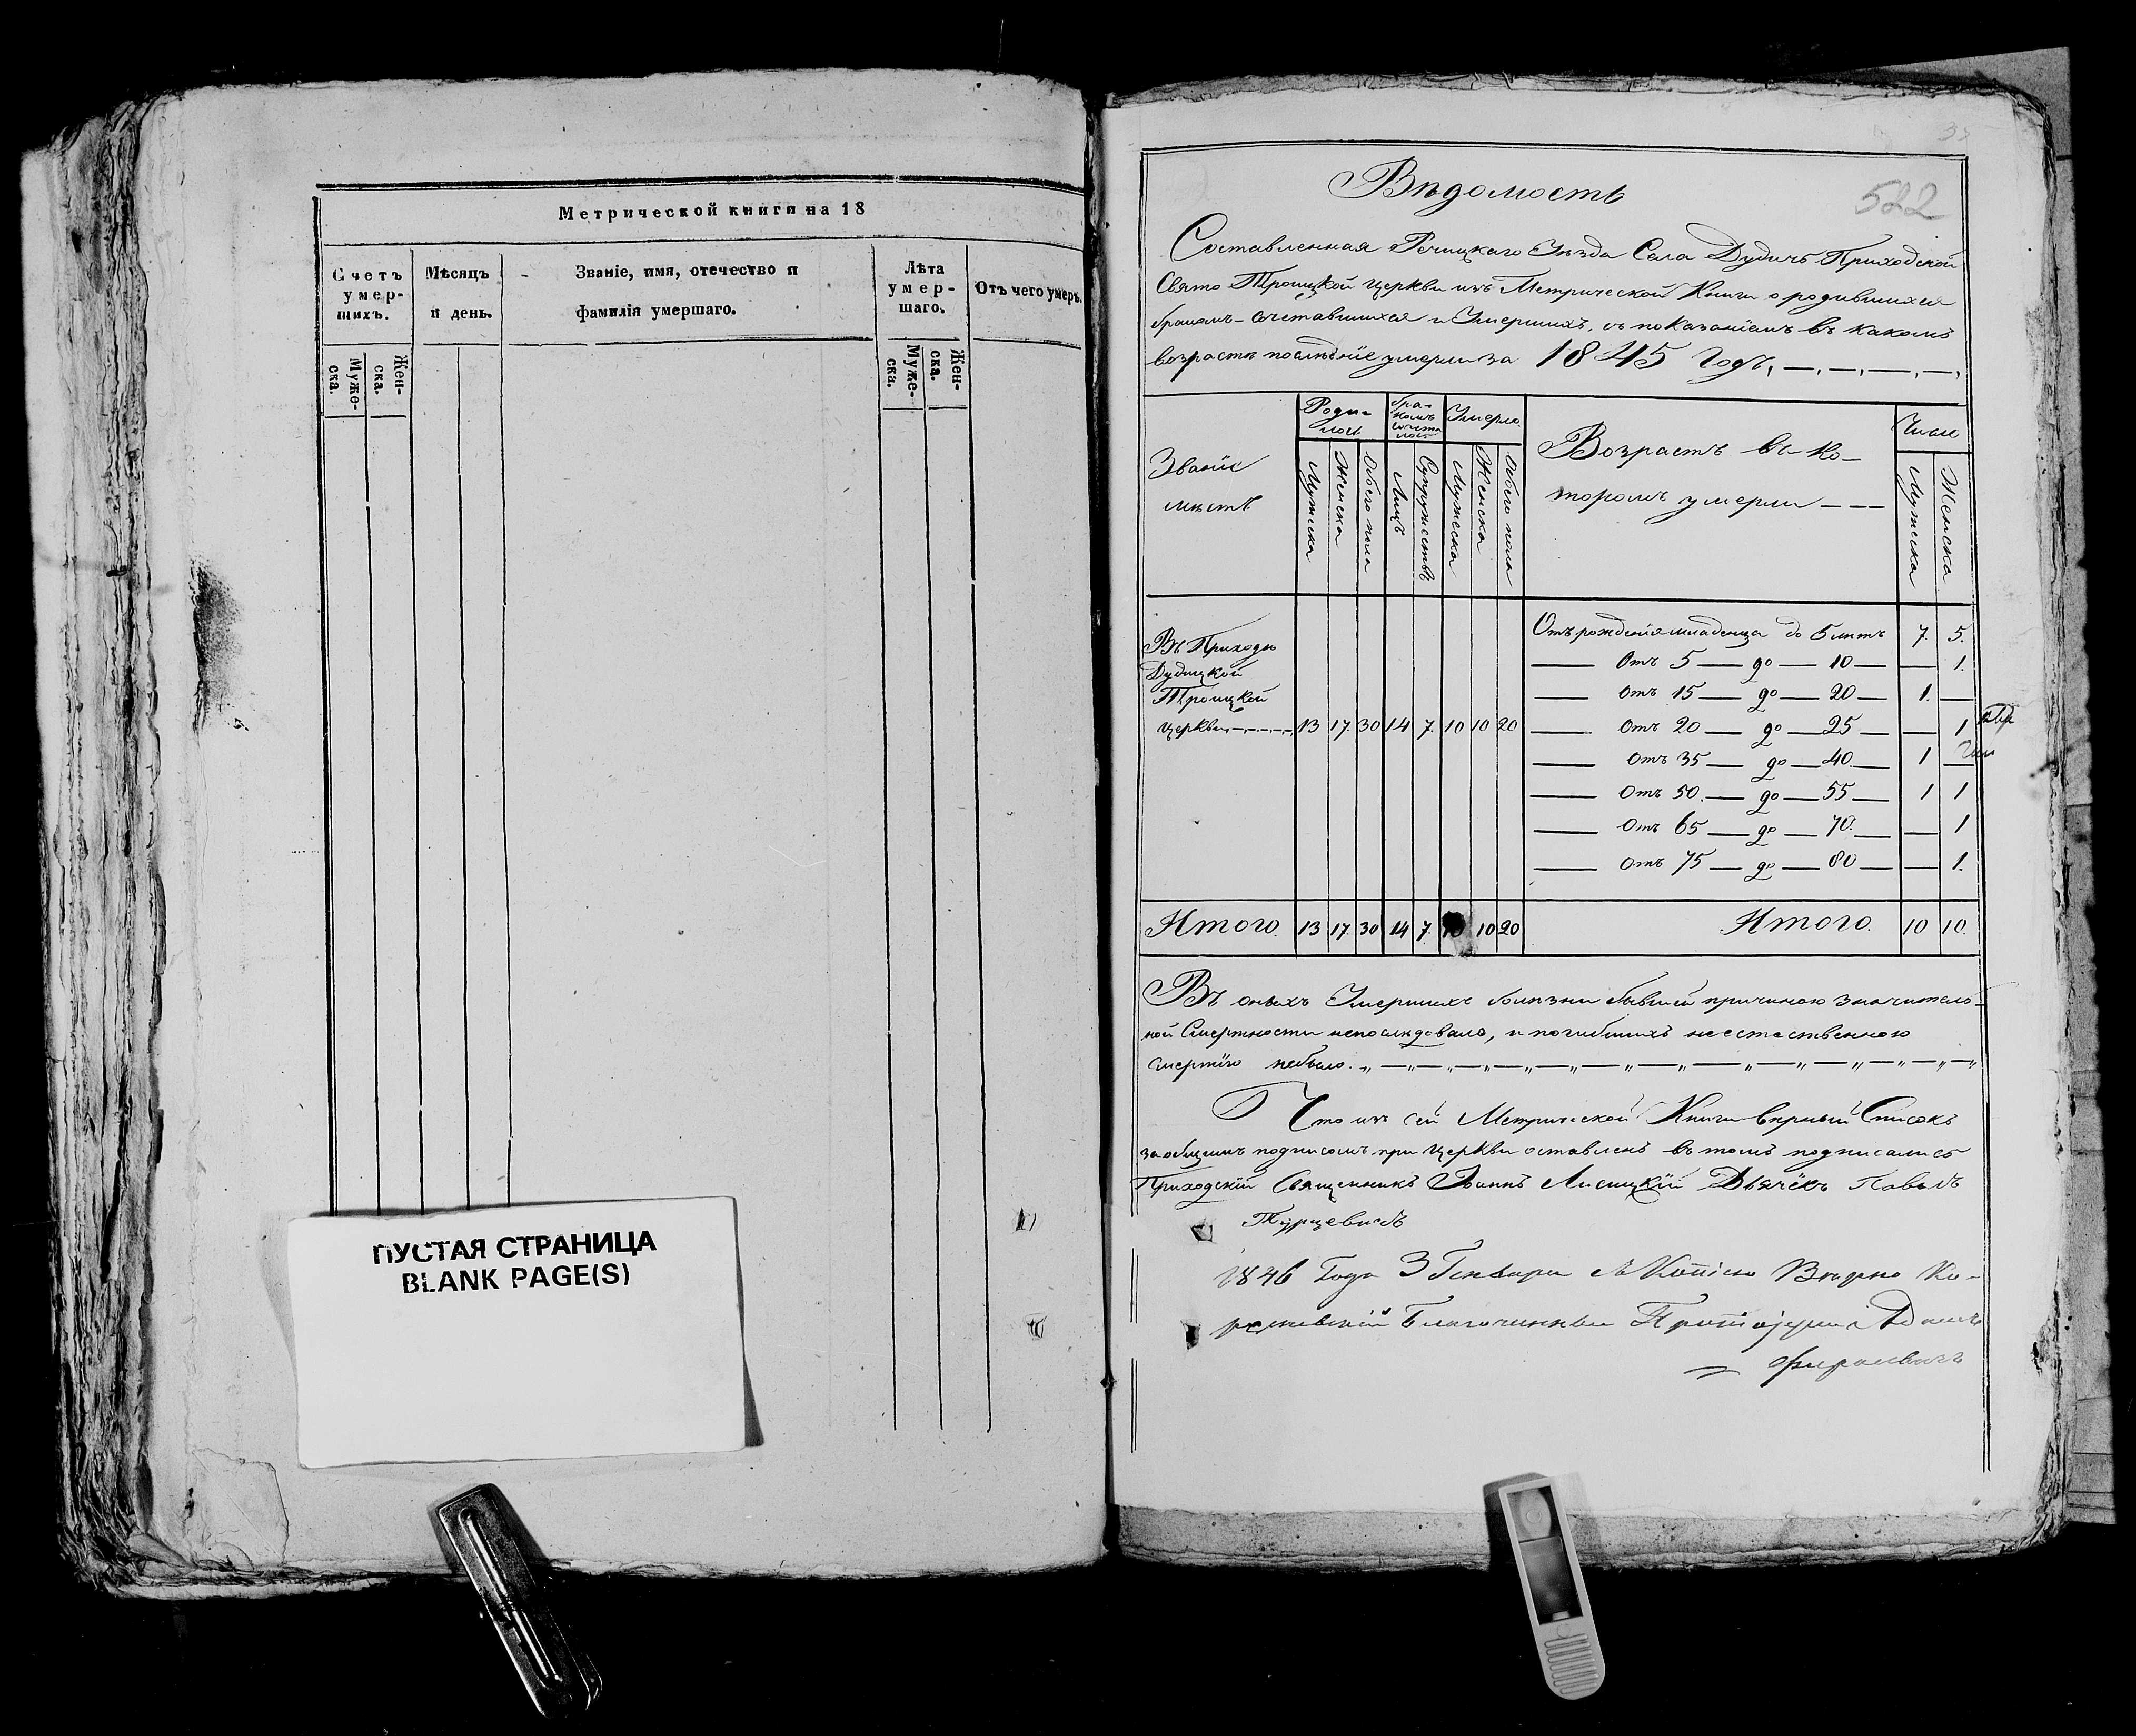 Метрической книги на 18
Счетъ умер- шихъ.
Мѣсяцъ и день.
Званіе, имя, отечество и
фамилія умершаго.
Лѣта умер- шаго.
Отъ чего умеръ.
Муже- ска.
Жен- ска.
Муже- ска.
Жен- ска.
ПУСТАЯ СТРАНИЦА
BLANK PAGE(S)
522
Вѣдомость
Составленная Речицкаго Уѣзда Села Дудичъ Приходской
Свято Троицкой Церкви изъ Метрической Книги о родившихся
бракомъ-сочетавшихся и Умершихъ, съ показаніемъ въ какомъ
возрастѣ послѣдніе умерли за 1845 Годъ,—,—,—,—,
Званіе мѣстъ
Роди- лось
Бра- комъ сочета лось
Умерло
Возрастъ въ ко-
торомъ умерли — —
Число
Мужеска
Женска
Обоего пола
Лицъ
Супружествъ
Мужеска
Женска
Обоего пола
Мужеска
Женска
Въ Приходѣ
Дудицкой
Троицкой
Церкви 13 17. 30 14 7. 10 10 20
Отъ рожденія младенца до 5 лѣтъ 7. 5.
— Отъ 5 — до — 10 — — 1.
— Отъ 15 — до — 20 — 1. —
— Отъ 20 — до — 25 — — 1
— Отъ 35 — до — 40. — 1 —
— Отъ 50. — до — 55 — 1 1
— Отъ 65 — до — 70. — — 1
— Отъ 75 — до — 80 — — 1.
Итого. 13 17. 30 14 7. 10 10 20 Итого. 10 10.
Въ оныхъ Умершихъ болѣзни бывшей причиною значитель-
ной Смертности непослѣдовало, и погибшихъ неестественною
смертію небыло.
Что изъ сей Метрической Книги вѣрный Списокъ
за общимъ подписомъ при Церкви оставленъ въ томъ подписались
Приходскій Священникъ Іоаннъ Лисицкій Дьячёкъ Павелъ
Турцевичъ
1846 Года 3 Генваря съ Копіею Вѣрно
Благочинный Протоіерей Адамъ